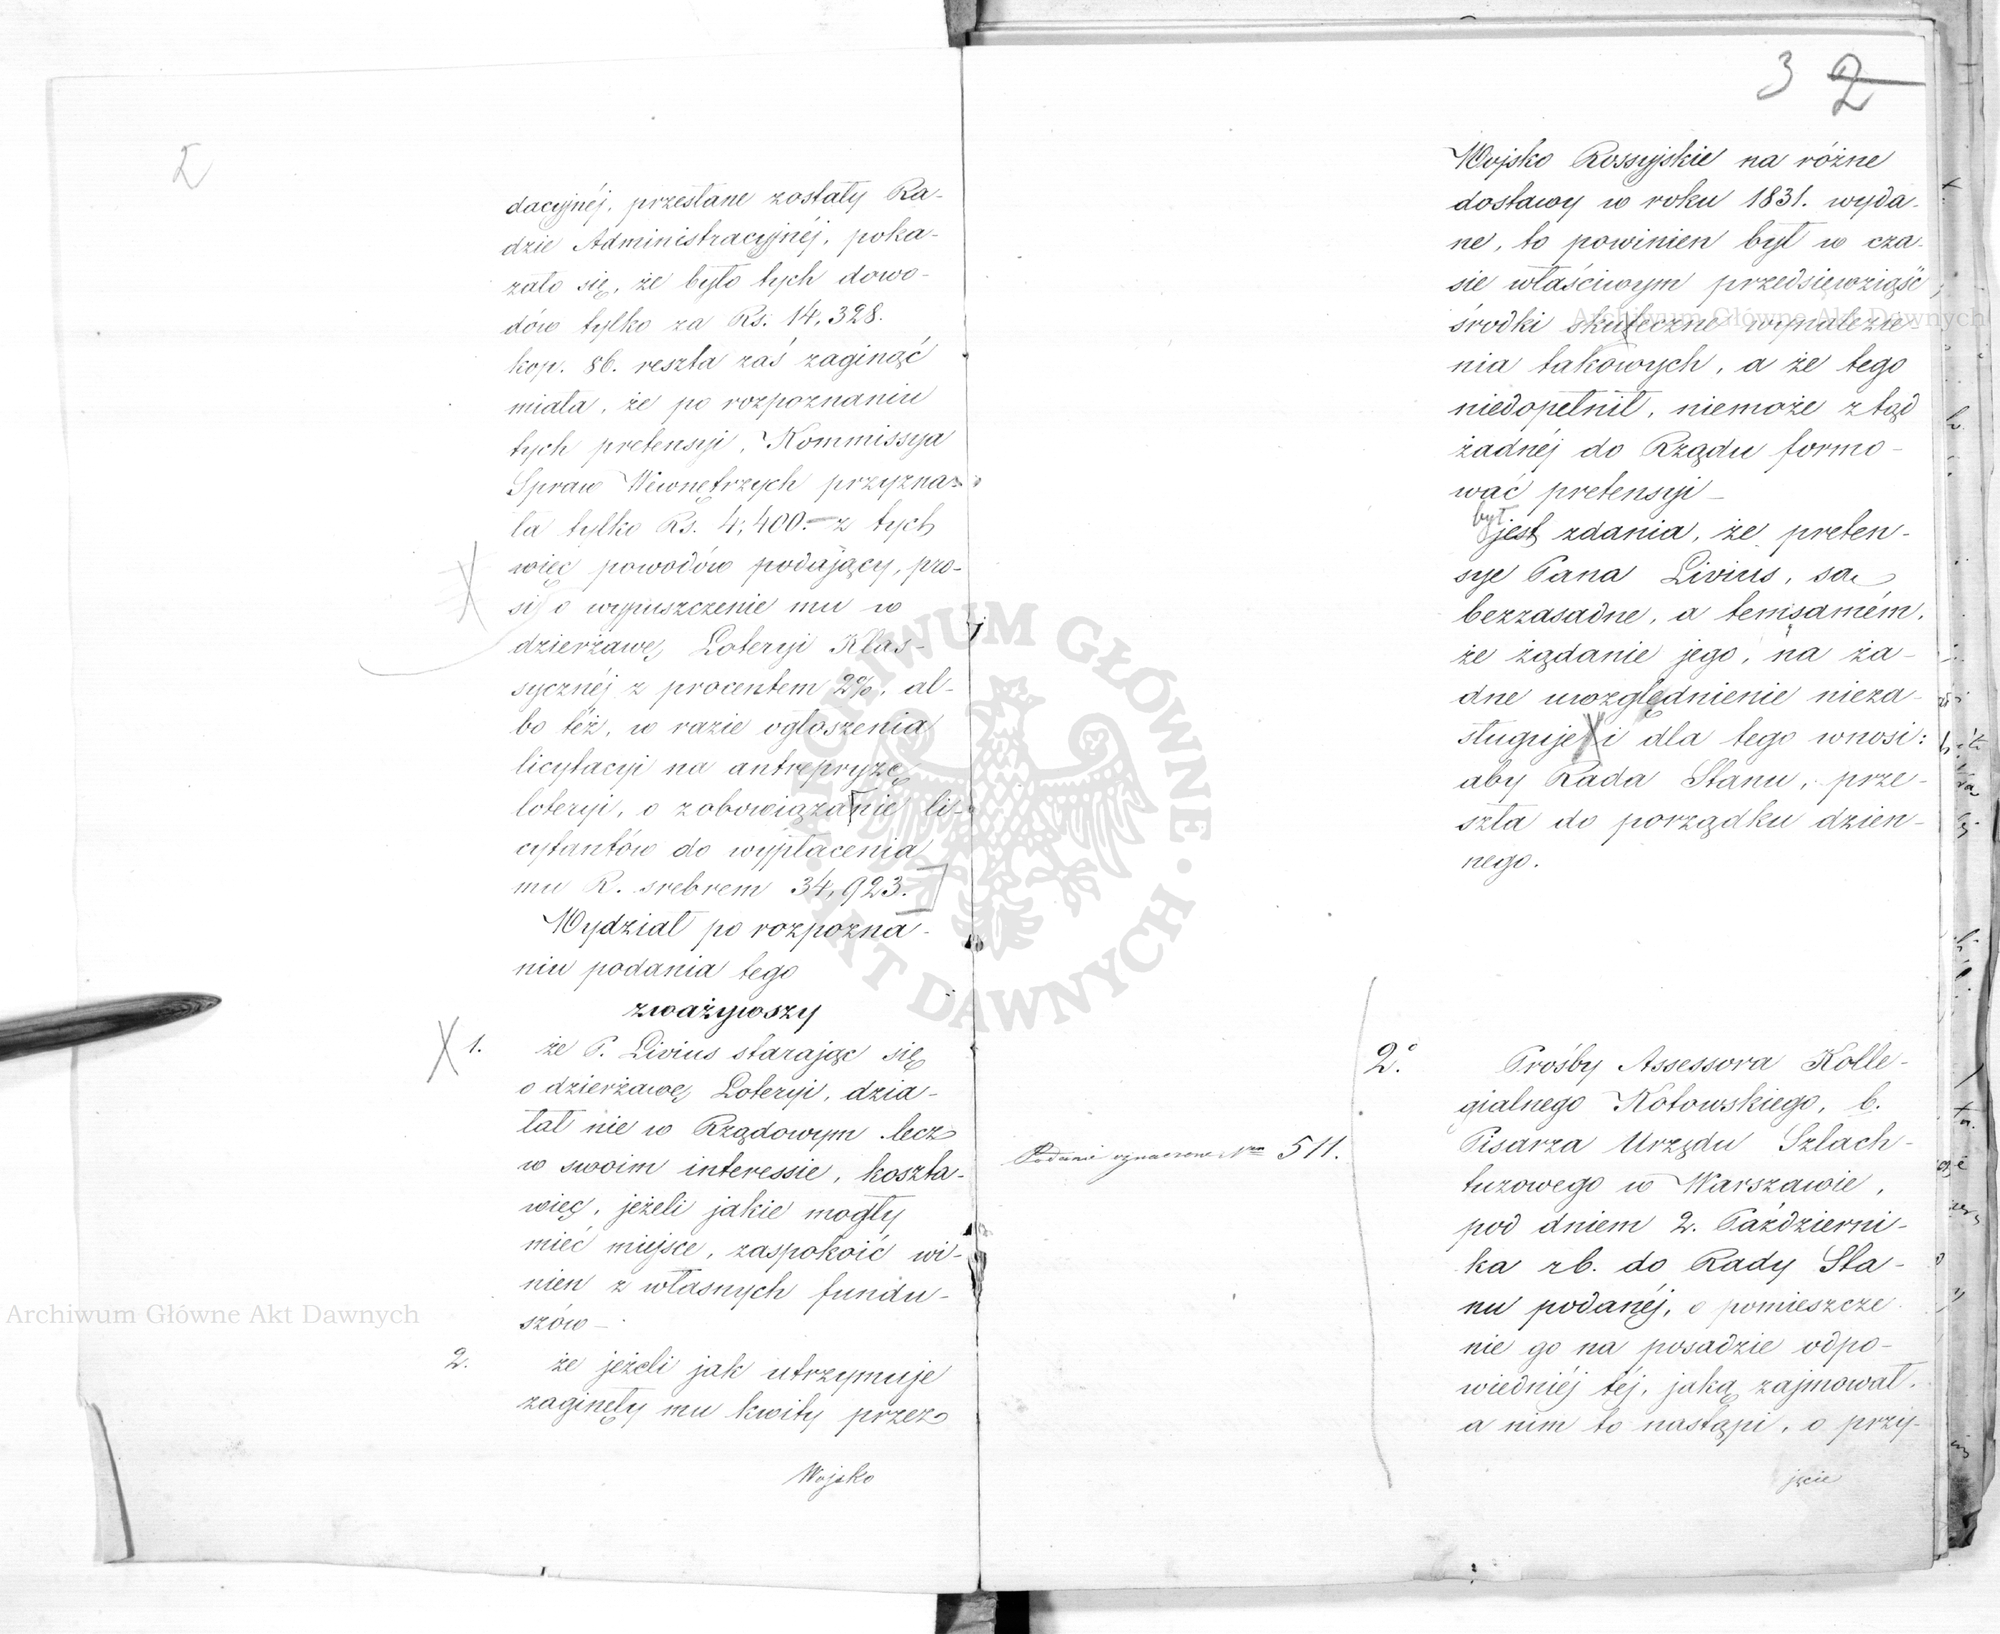 2
dacyjnéj, przesłane zostały Ra-
dzie Administracyjnéj, poka-
zało się, że było tych dowo-
dów tylko za Rs. 14,328.
kop. 86. reszta zaś zaginąć
miała, że po rozpoznaniu
tych pretensyi, Kommissya
Spraw Wewnętrznych przyzna-
ła tylko Rs. 4,400.— z tych
więc powodów podający, pro-
si o wypuszczenie mu w
dzierżawę Loteryi Klas-
sycznéj z procentem 2%, al-
bo też, w razie ogłoszenia
licytacyi na antrepryzę
loteryi, o zobowiązanie li-
cytantów do wypłacenia
mu R. srebrem 34,923.
Wydział po rozpozna-
niu podania tego
zważywszy
1. że P. Livius starając się
o dzierżawę Loteryi, dzia-
łał nie w Rządowym lecz
w swoim interessie, koszta
więc, jeżeli jakie mogły
mieć miejsce, zaspokoić wi-
nien z własnych fundu-
szów—
2. że jeżeli jak utrzymuje
zaginęły mu kwity przez
Wojsko
3 2
Wojsko Rossyjskie na różne
dostawy w roku 1831. wyda-
ne, to powinien był w cza-
sie właściwym przedsięwziąść
środki skuteczne wynalezie-
nia takowych, a że tego
niedopełnił, niemoże ztąd
żadnéj do Rządu formo-
wać pretensyi—
był
jest zdania, że preten-
sye Pana Livius, są
bezzasadne, a temsamém,
że żądanie jego, na ża-
dne uwzględnienie nieza-
sługuje i dla tego wnosi:
aby Rada Stanu, prze-
szła do porządku dzien-
nego.
2.° Prośby Assessora Kolle-
gialnego Kotowskiego, b.
Pisarza Urzędu Szlach-
tuzowego w Warszawie,
Podanie oznaczone Nrem 511.
pod dniem 2. Październi-
ka rb. do Rady Sta-
nu podanéj, o pomieszcze
nie go na posadzie odpo-
wiedniéj téj, jaką zajmował,
a nim to nastąpi, o przy-
jęcie
Archiwum Główne Akt Dawnych
Archiwum Główne Akt Dawnych
ARCHIWUM GŁÓWNE AKT DAWNYCH